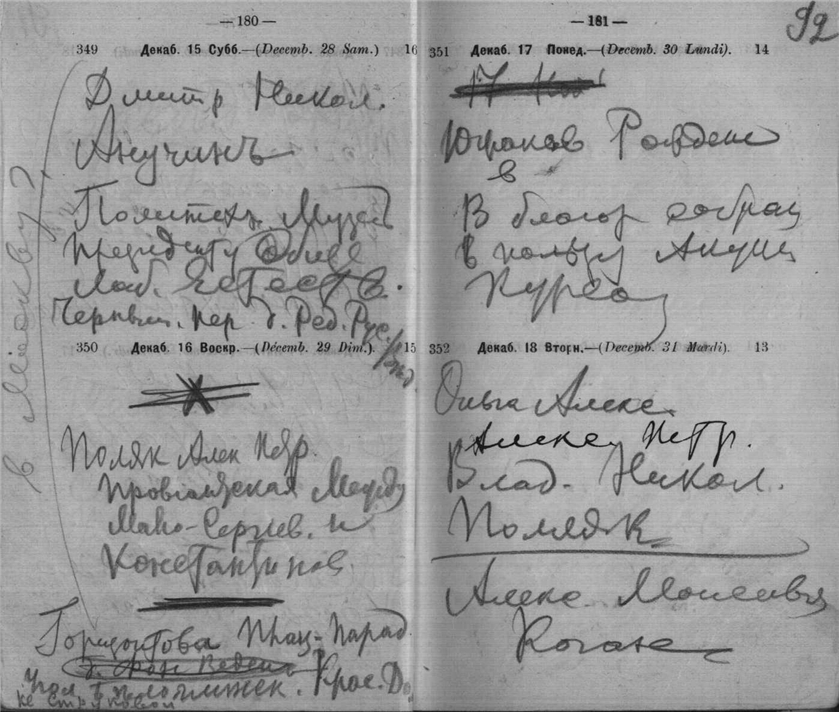 — 180 —
349 Декаб. 15 Субб.—(Decemb. 28 Sam.) 16
Дмитр Никол.
Анучинъ
Политех. Музей
президенту Общ
Люб. Естеств.
Черныш. пер. д. Ред. Рус.
в Москву?
350 Декаб. 16 Воскр.—(Decemb. 29 Dim.). 15
Поляк Алек Петр.
Провиантская Между
Мало-Сергиев. и
Константинов.
Плац-Парад
— 181 —
92
351 Декаб. 17 Понед.—(Decemb. 30 Lundi). 14
в
В благор собран
в пользу
Курсов
352 Декаб. 18 Вторн.—(Decemb. 31 Mardi). 13
Ольга Алекс.
Алекс. Петр.
Влад. Никол.
Поляк
Алекс. Моисеевич
Коган